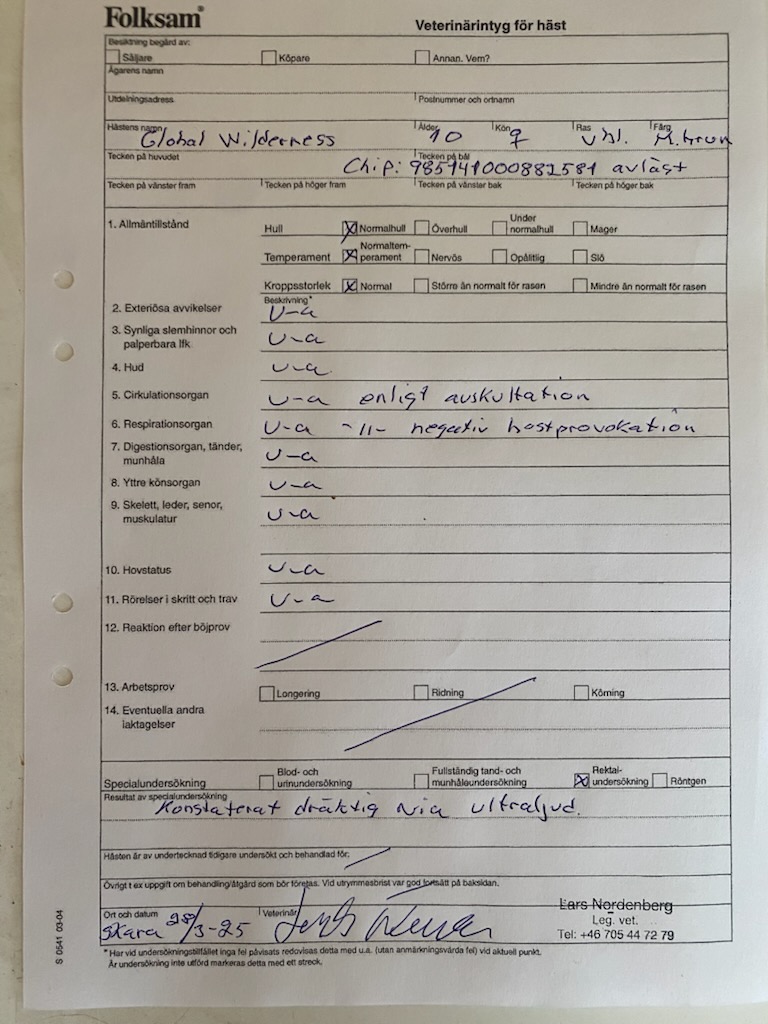 Folksam
Veterinärintyg för häst
Besiktning begärd av:
Säljare Köpare Annan. Vem?
Ägarens namn
Utdelningsadress Postnummer och ortnamn
Hästens namn Ålder Kön Ras Färg
Global Wilderness 10 Vbl. M.brun
Tecken på huvudet Tecken på bål
Chip: 985141000881581 avläst
Tecken på vänster fram Tecken på höger fram Tecken på vänster bak Tecken på höger bak
1. Allmäntillstånd Hull Normalhull Överhull Under normalhull Mager
Temperament Normaltem-perament Nervös Opålitlig Slö
Kroppsstorlek Normal Större än normalt för rasen Mindre än normalt för rasen
Beskrivning*
2. Exteriösa avvikelser u-a
3. Synliga slemhinnor och
palperbara lfk u-a
4. Hud u-a
5. Cirkulationsorgan u-a enligt auskultation
6. Respirationsorgan u-a -11- negativ hostprovokation
7. Digestionsorgan, tänder,
munhåla u-a
8. Yttre könsorgan u-a
9. Skelett, leder, senor,
muskulatur u-a
10. Hovstatus u-a
11. Rörelser i skritt och trav u-a
12. Reaktion efter böjprov
13. Arbetsprov Longering Ridning Körning
14. Eventuella andra
iaktagelser
Specialundersökning Blod- och urinundersökning Fullständig tand- och munhåleundersökning Rektal-undersökning Röntgen
Resultat av specialundersökning
Konstaterat dräktig via ultraljud.
Hästen är av undertecknad tidigare undersökt och behandlad för:
Övrigt t ex uppgift om behandling/åtgärd som bör företas. Vid utrymmesbrist var god fortsätt på baksidan.
Ort och datum Veterinär
Skara 28/3-25
Lars Nordenberg
Leg. vet.
Tel: +46 705 44 72 79
* Har vid undersökningstillfället inga fel påvisats redovisas detta med u.a. (utan anmärkningsvärda fel) vid aktuell punkt.
Är undersökning inte utförd markeras detta med ett streck.
S 0541 03-04